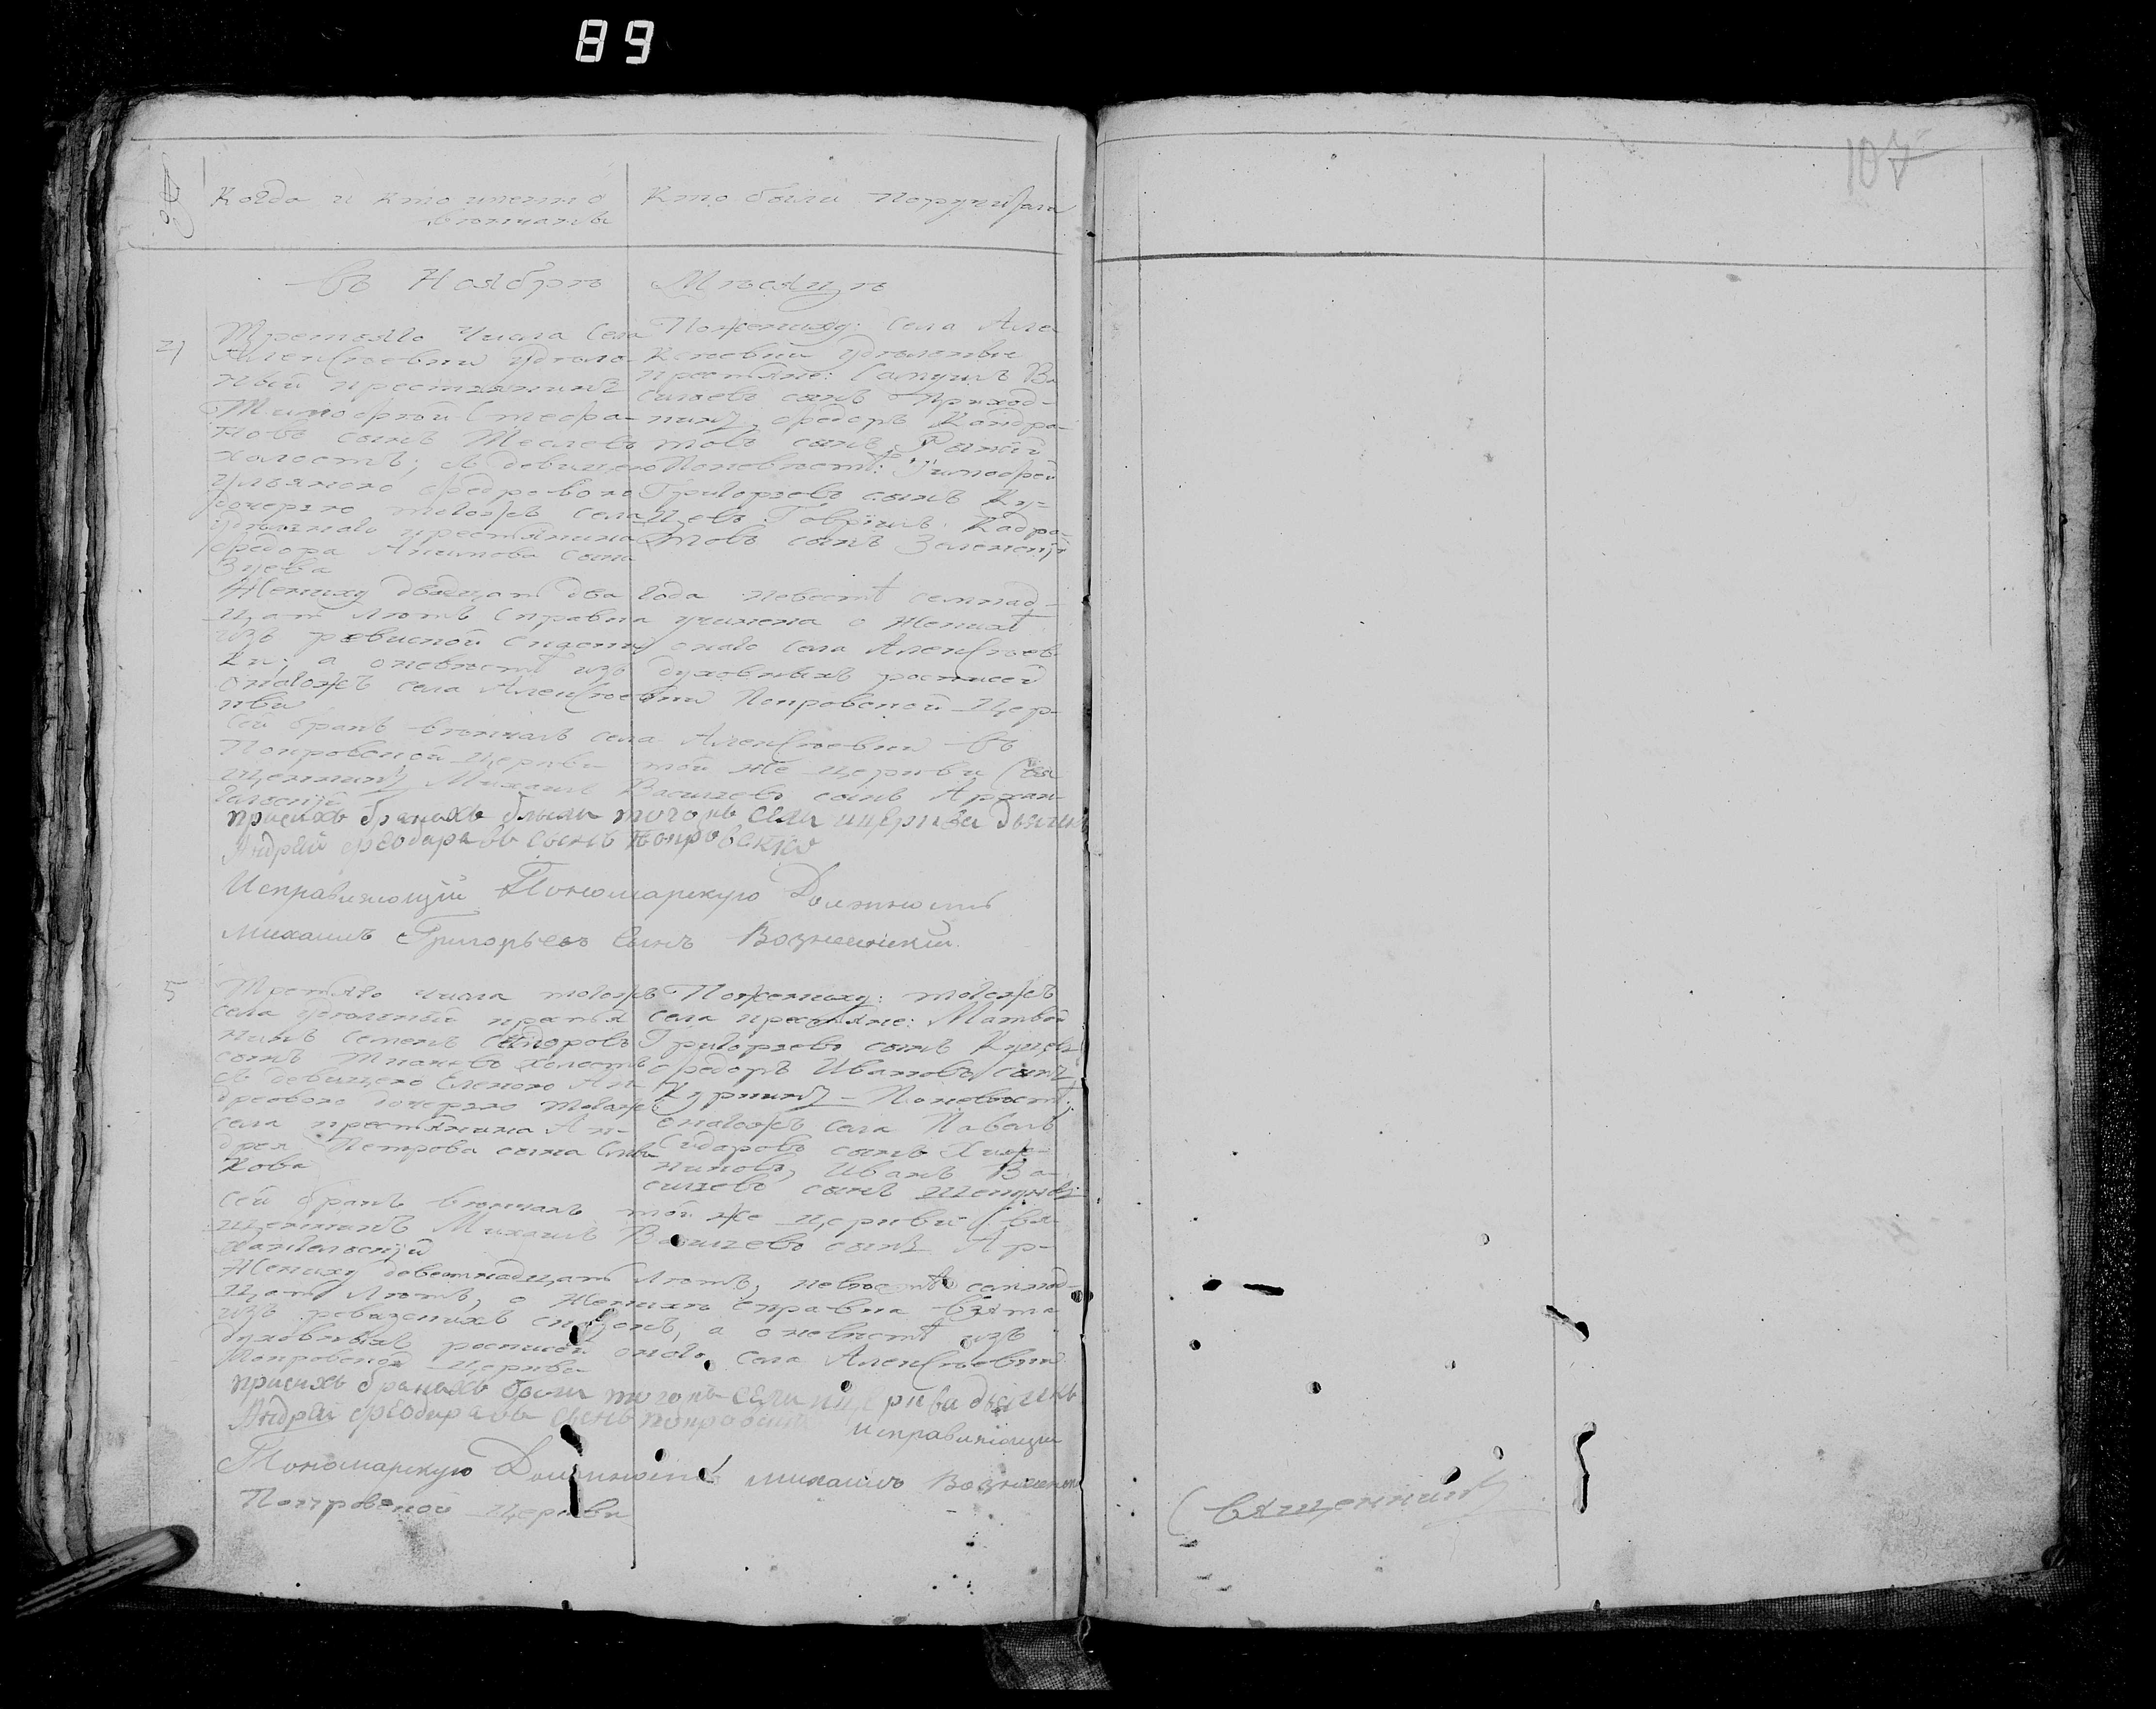 89
107
№
Когда и кто именно
венчаны
Кто были Поручители
Въ Ноябрѣ Мѣсяцѣ
4
Третяго Числа Села
Алексѣевки удѣль-
ный крестьянинъ
Тимофѣй Стефа-
новъ сынъ
холостъ; съ девицею
Ульяною Федоровою
дочерью тогожъ села
удѣлнаго крестянина
Федора Акимова сына
Зуева
Поженихү: села Але-
ксѣевки удѣльные
крестьяне: Самуилъ Ва-
силіевъ сынъ
Федоръ Кондра-
товъ сынъ
Поневѣстѣ: Тимофей
Григорьевъ сынъ Ку-
цевъ Гаврiилъ Кадра-
товъ сынъ
Жениху двадцать два года невестѣ семнад-
цать лѣтъ Справка учинена о Женихѣ
изъ ревиской онаго села Алексѣев-
ки; а оневѣстѣ изъ духовныхъ росписей
оногожъ села Алексѣевки Покровской Цер-
кви
Сей бракъ вѣнчалъ села Алексѣевки въ
Покровской Церкви той же церкви Свя
щенникъ Михаилъ Василіевъ сынъ Архан-
гелскій
присихъ бракахъ были тогожъ села ицеркви дьячикъ
Андрей Феодаравъ сынъ покровский
Исправляющій Пономарскую Должность
Михаилъ Григорьевъ Сынъ Вознесенский
5
Третяго числа тогожъ
села удѣлный крестья
нинъ Семенъ Сидоровъ
сынъ холостъ
съ девицею Еленою Ан-
дреевою дочерью тогожъ
села крестянина Ан-
дрея Петрова сына
кова
Пожениху: тогожъ
села крестьяне: Матвей
Григорьевъ сынъ Куцевъ
Федоръ Ивановъ сынъ
Поневѣстѣ:
оногожъ села Павелъ
Сидаровъ сынъ
Иванъ Ва-
силіевъ сынъ
Сей бракъ вѣнчалъ той же церкви Свя-
щенникъ Михаилъ Василіевъ сынъ Ар-
хангелоскій
Жениху девятнадцать лѣтъ, невѣстѣ семнад-
цать лѣтъ, о Женихѣ справка взята
изъ ревизскихъ а оневѣстѣ изъ
духовныхъ росписей онаго села Алексѣевки
Покровской церкви
присихъ бракахъ были тогожъ села ицеркви дьячикъ
Андрей Феодаравъ сынъ покровский
исправляющий
Пономарскую Должность михаилъ Вознесенски
Покровской Церкви
Священникъ